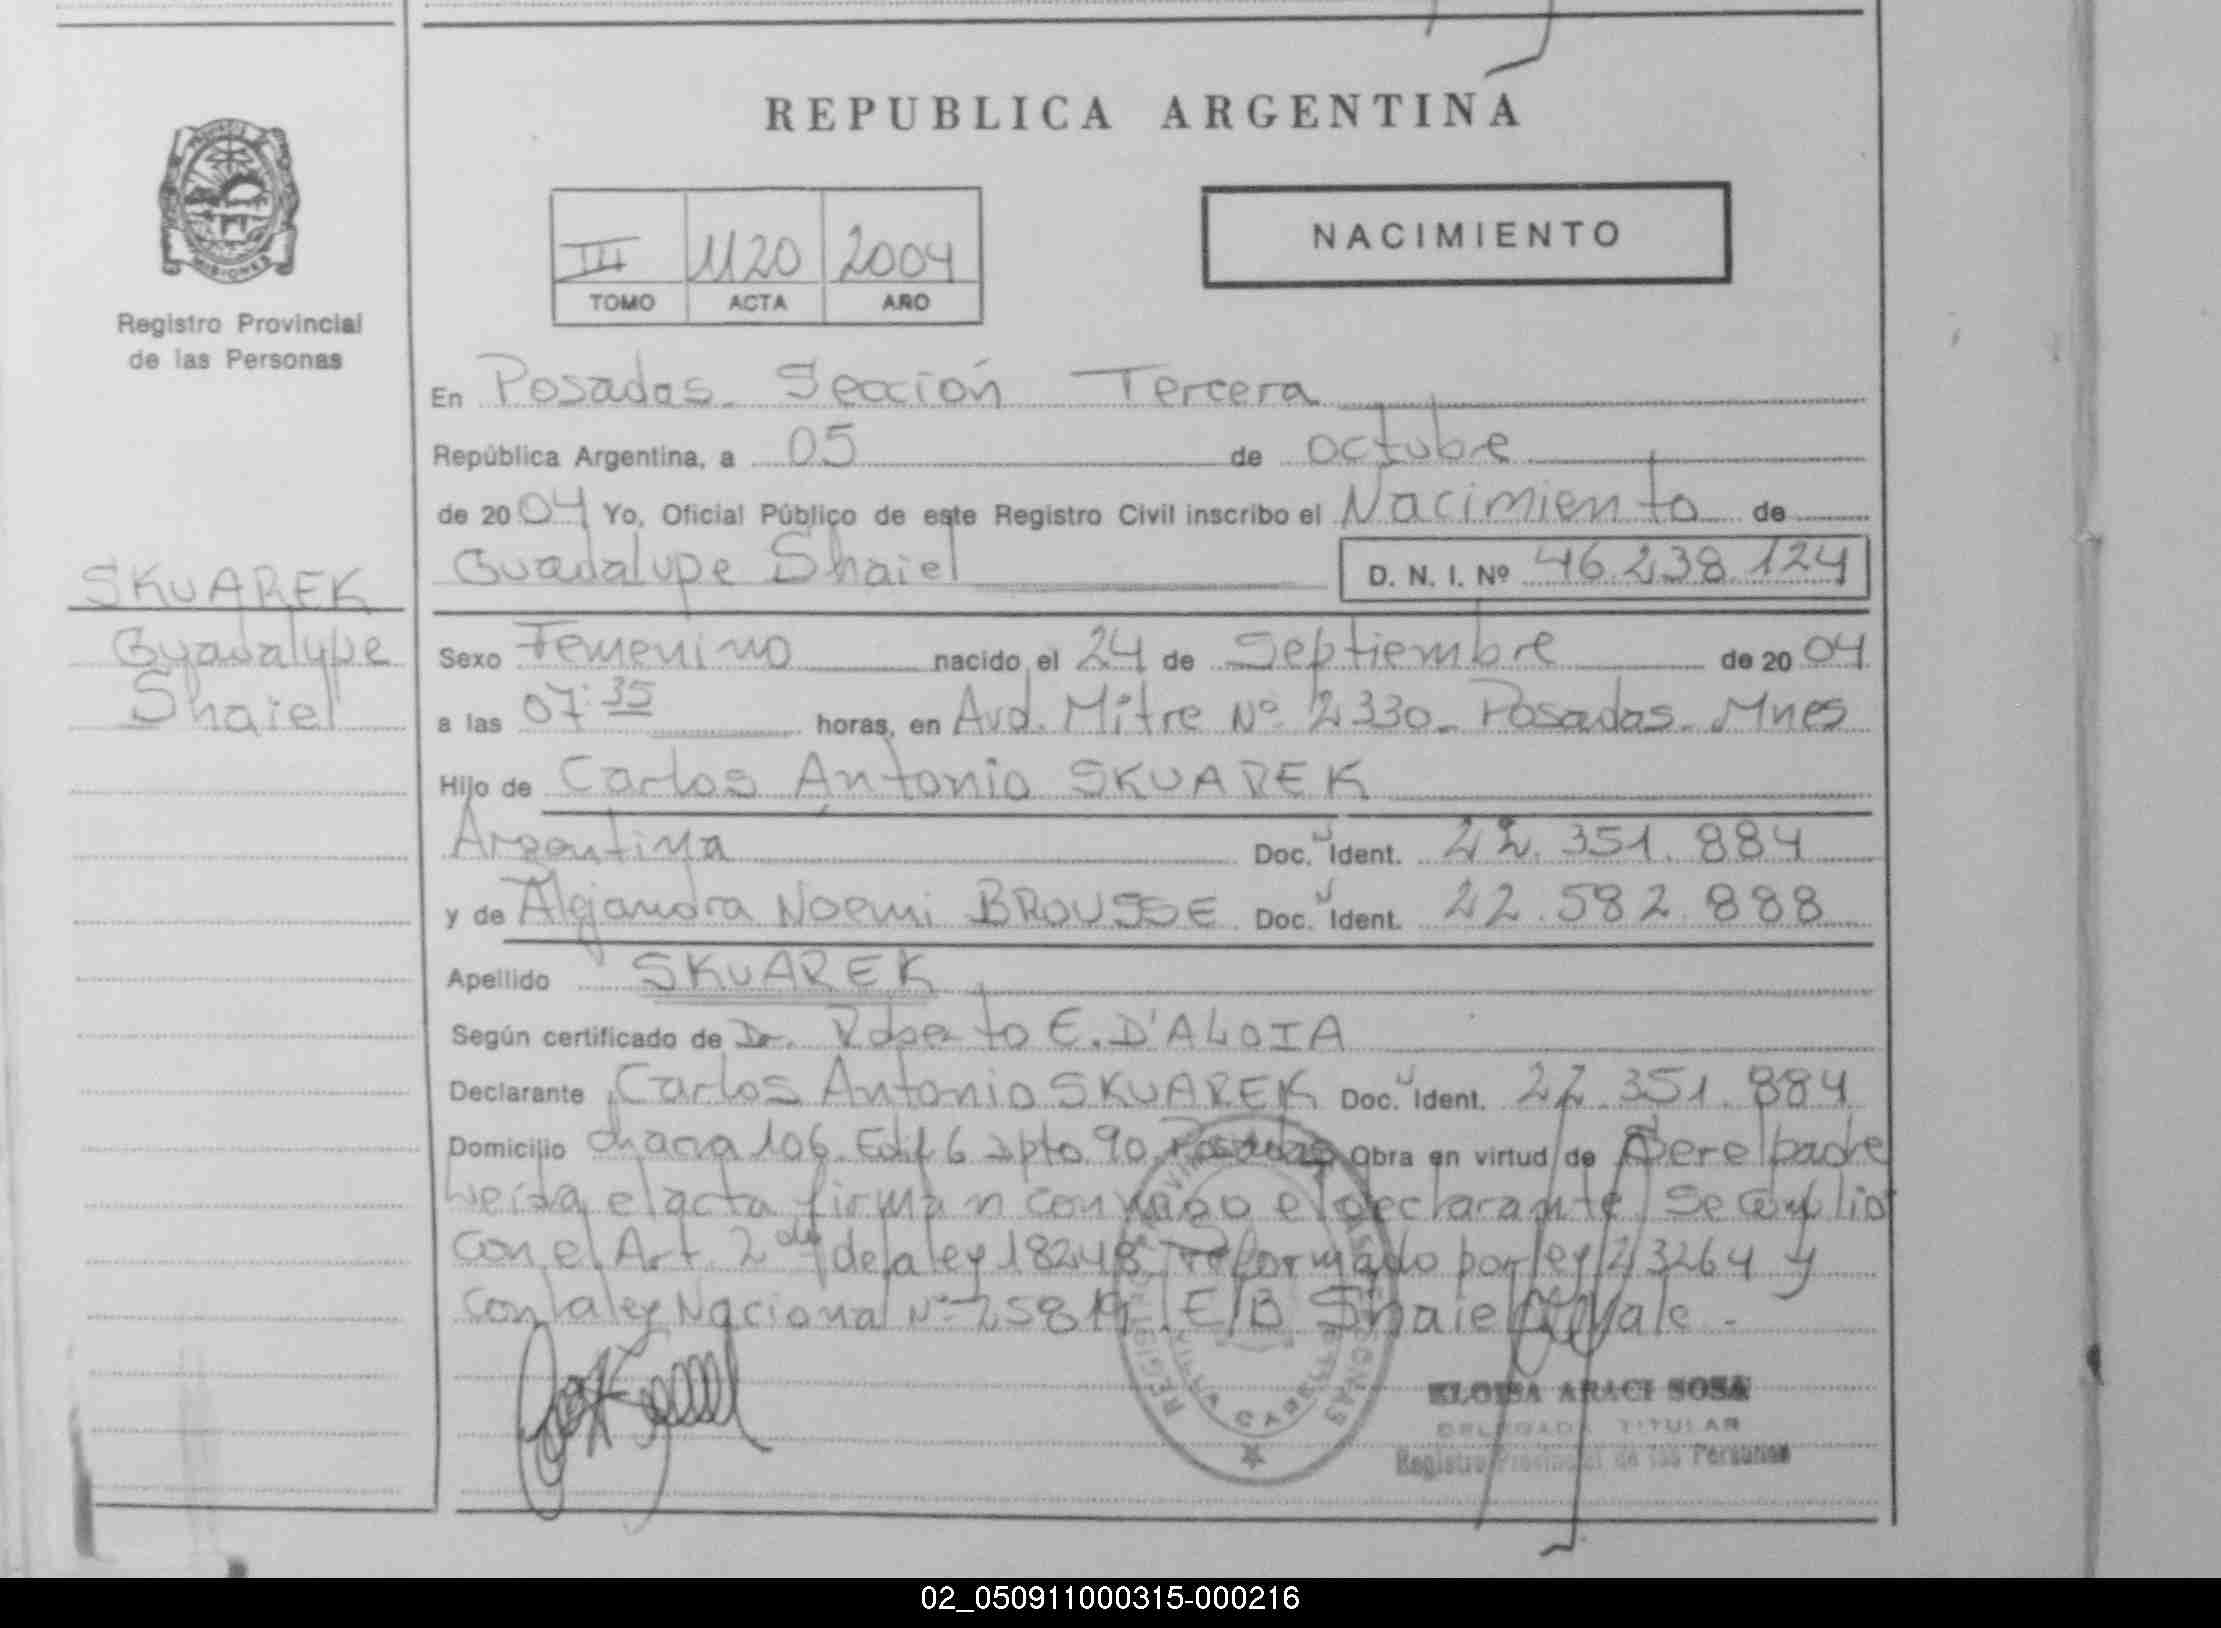 REPUBLICA ARGENTINA
MISIONES
Registro Provincial
de las Personas
III 1120 2004
TOMO ACTA AÑO
NACIMIENTO
En Posadas. Sección Tercera
República Argentina, a 05 de octubre
de 2004 Yo, Oficial Público de este Registro Civil inscribo el Nacimiento de
Guadalupe Shaiel D. N. I. Nº 46.238.124
SKUAREK
Guadalupe
Shaiel
Sexo Femenino nacido el 24 de Septiembre de 2004
a las 07:35 horas, en Avd. Mitre Nº 2330- Posadas- Mnes
Hijo de Carlos Antonio SKUAREK
Argentina Doc. Ident. 22.351.884
y de Alejandra Noemi BROUSSE Doc. Ident. 22.582.888
Apellido SKUAREK
Según certificado de Dr. Roberto E. D'ALOIA
Declarante Carlos Antonio SKUAREK Doc. Ident. 22.351.884
Domicilio chacra 106 Edif 6 dpto 90 Posadas Obra en virtud de Ser el padre
Leída el acta firman conmigo el declarante Se cumplio
con el Art. 2do de la ley 18248 reformado por ley 23264 y
con la ley Nacional Nº 25819. E/B Shaiel Vale -
ELOISA ARACI SOSA
DELEGADA TITULAR
Registro Provincial de las Personas
02_050911000315-000216